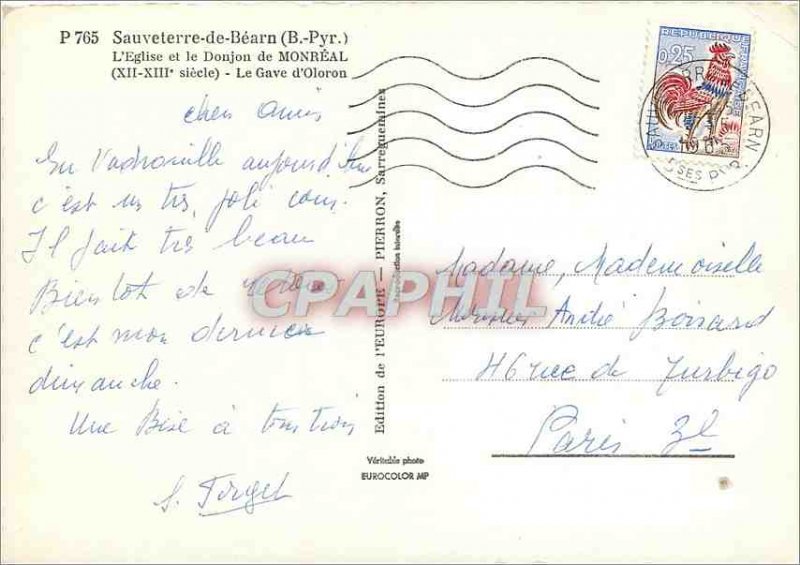 P 765 Sauveterre-de-Béarn (B.-Pyr.)
L'Eglise et le Donjon de MONRÉAL
(XII-XIIIe siècle) - Le Gave d'Oloron
chers amis
En Vadrouille aujourd'hui
c'est un très joli coin.
Il fait très beau
Bientôt de retour
c'est mon dernier
dimanche.
Une Bise à tous trois
S. Forget
Edition de l'EUROPE — PIERRON, Sarreguemines
Reproduction interdite
Véritable photo
EUROCOLOR MP
CPAPHIL
REPUBLIQUE FRANÇAISE
0,25
Madame, Mademoiselle
Monsieur André Boisard
46 rue de Turbigo
Paris 3e